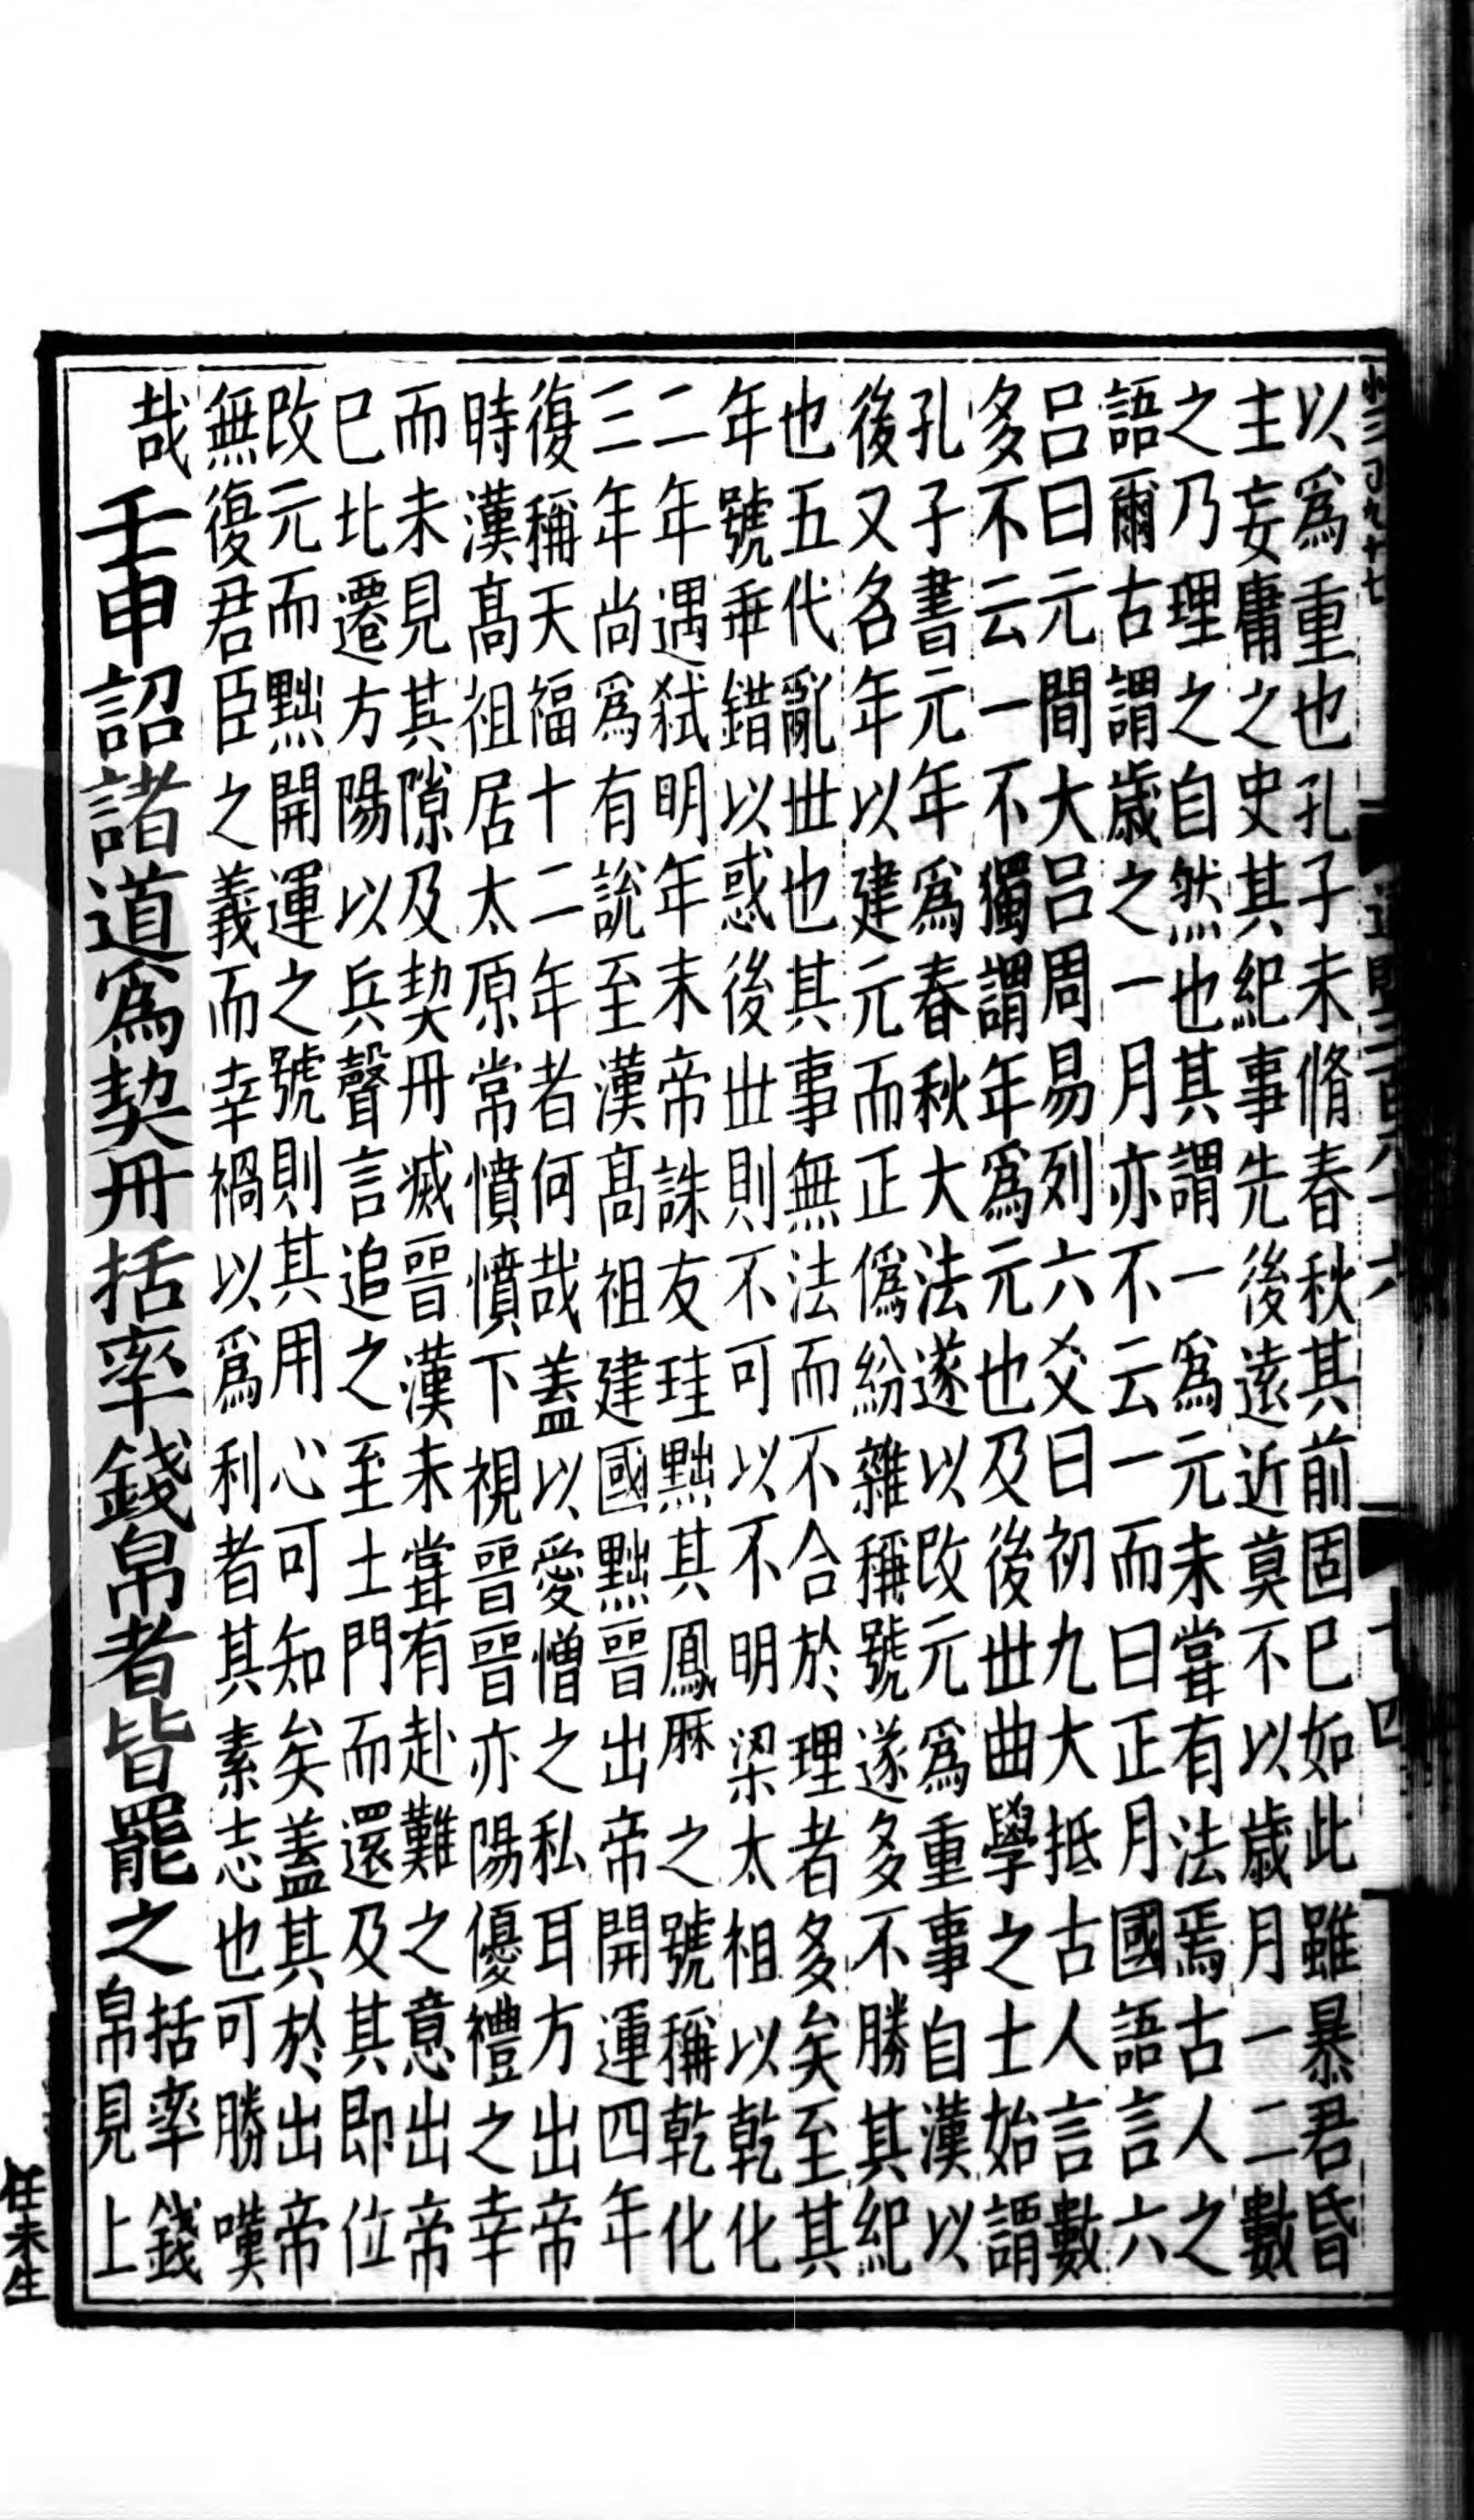 以爲重也孔子未脩春秋其前固已如此雖暴君昏
主妄庸之史其紀事先後遠近莫不以歲月一二數
之乃理之自然也其謂一爲元未甞有法焉古人之
語爾古謂歲之一月亦不云一而曰正月國語言六
呂曰元間大呂周易列六爻曰初九大抵古人言數
多不云一不獨謂年爲元也及後世曲學之士始謂
孔子書元年爲春秋大法遂以改元爲重事自漢以
後又名年以建元而正僞紛雜稱號遂多不勝其紀
也五代亂世也其事無法而不合於理者多矣至其
年號乖錯以惑後世則不可以不明梁太祖以乾化
二年遇弑明年末帝誅友珪黜其鳳厤之號稱乾化
三年尚爲有說至漢高祖建國黜晉出帝開運四年
復稱天福十二年者何哉盖以愛憎之私耳方出帝
時漢髙祖居太原常憤憤下視晉晉亦陽優禮之幸
而未見其隙及契丹滅晉漢未甞有赴難之意出帝
已北遷方陽以兵聲言追之至土門而還及其即位
改元而黜開運之號則其用心可知矣盖其於出帝
無復君臣之義而幸禍以爲利者其素志也可勝嘆
哉
壬申詔諸道爲契丹括率錢帛者皆罷之
括率錢
帛見上
任未生